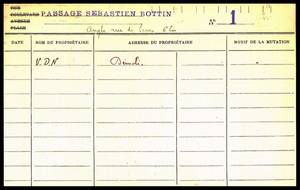 RUE
BOULEVARD
AVENUE
PLACE
PASSAGE SÉBASTIEN BOTTIN
N° 1
Angle rue de
DATE
NOM DU PROPRIÉTAIRE
ADRESSE DU PROPRIÉTAIRE
MOTIF DE LA MUTATION
V.D.N